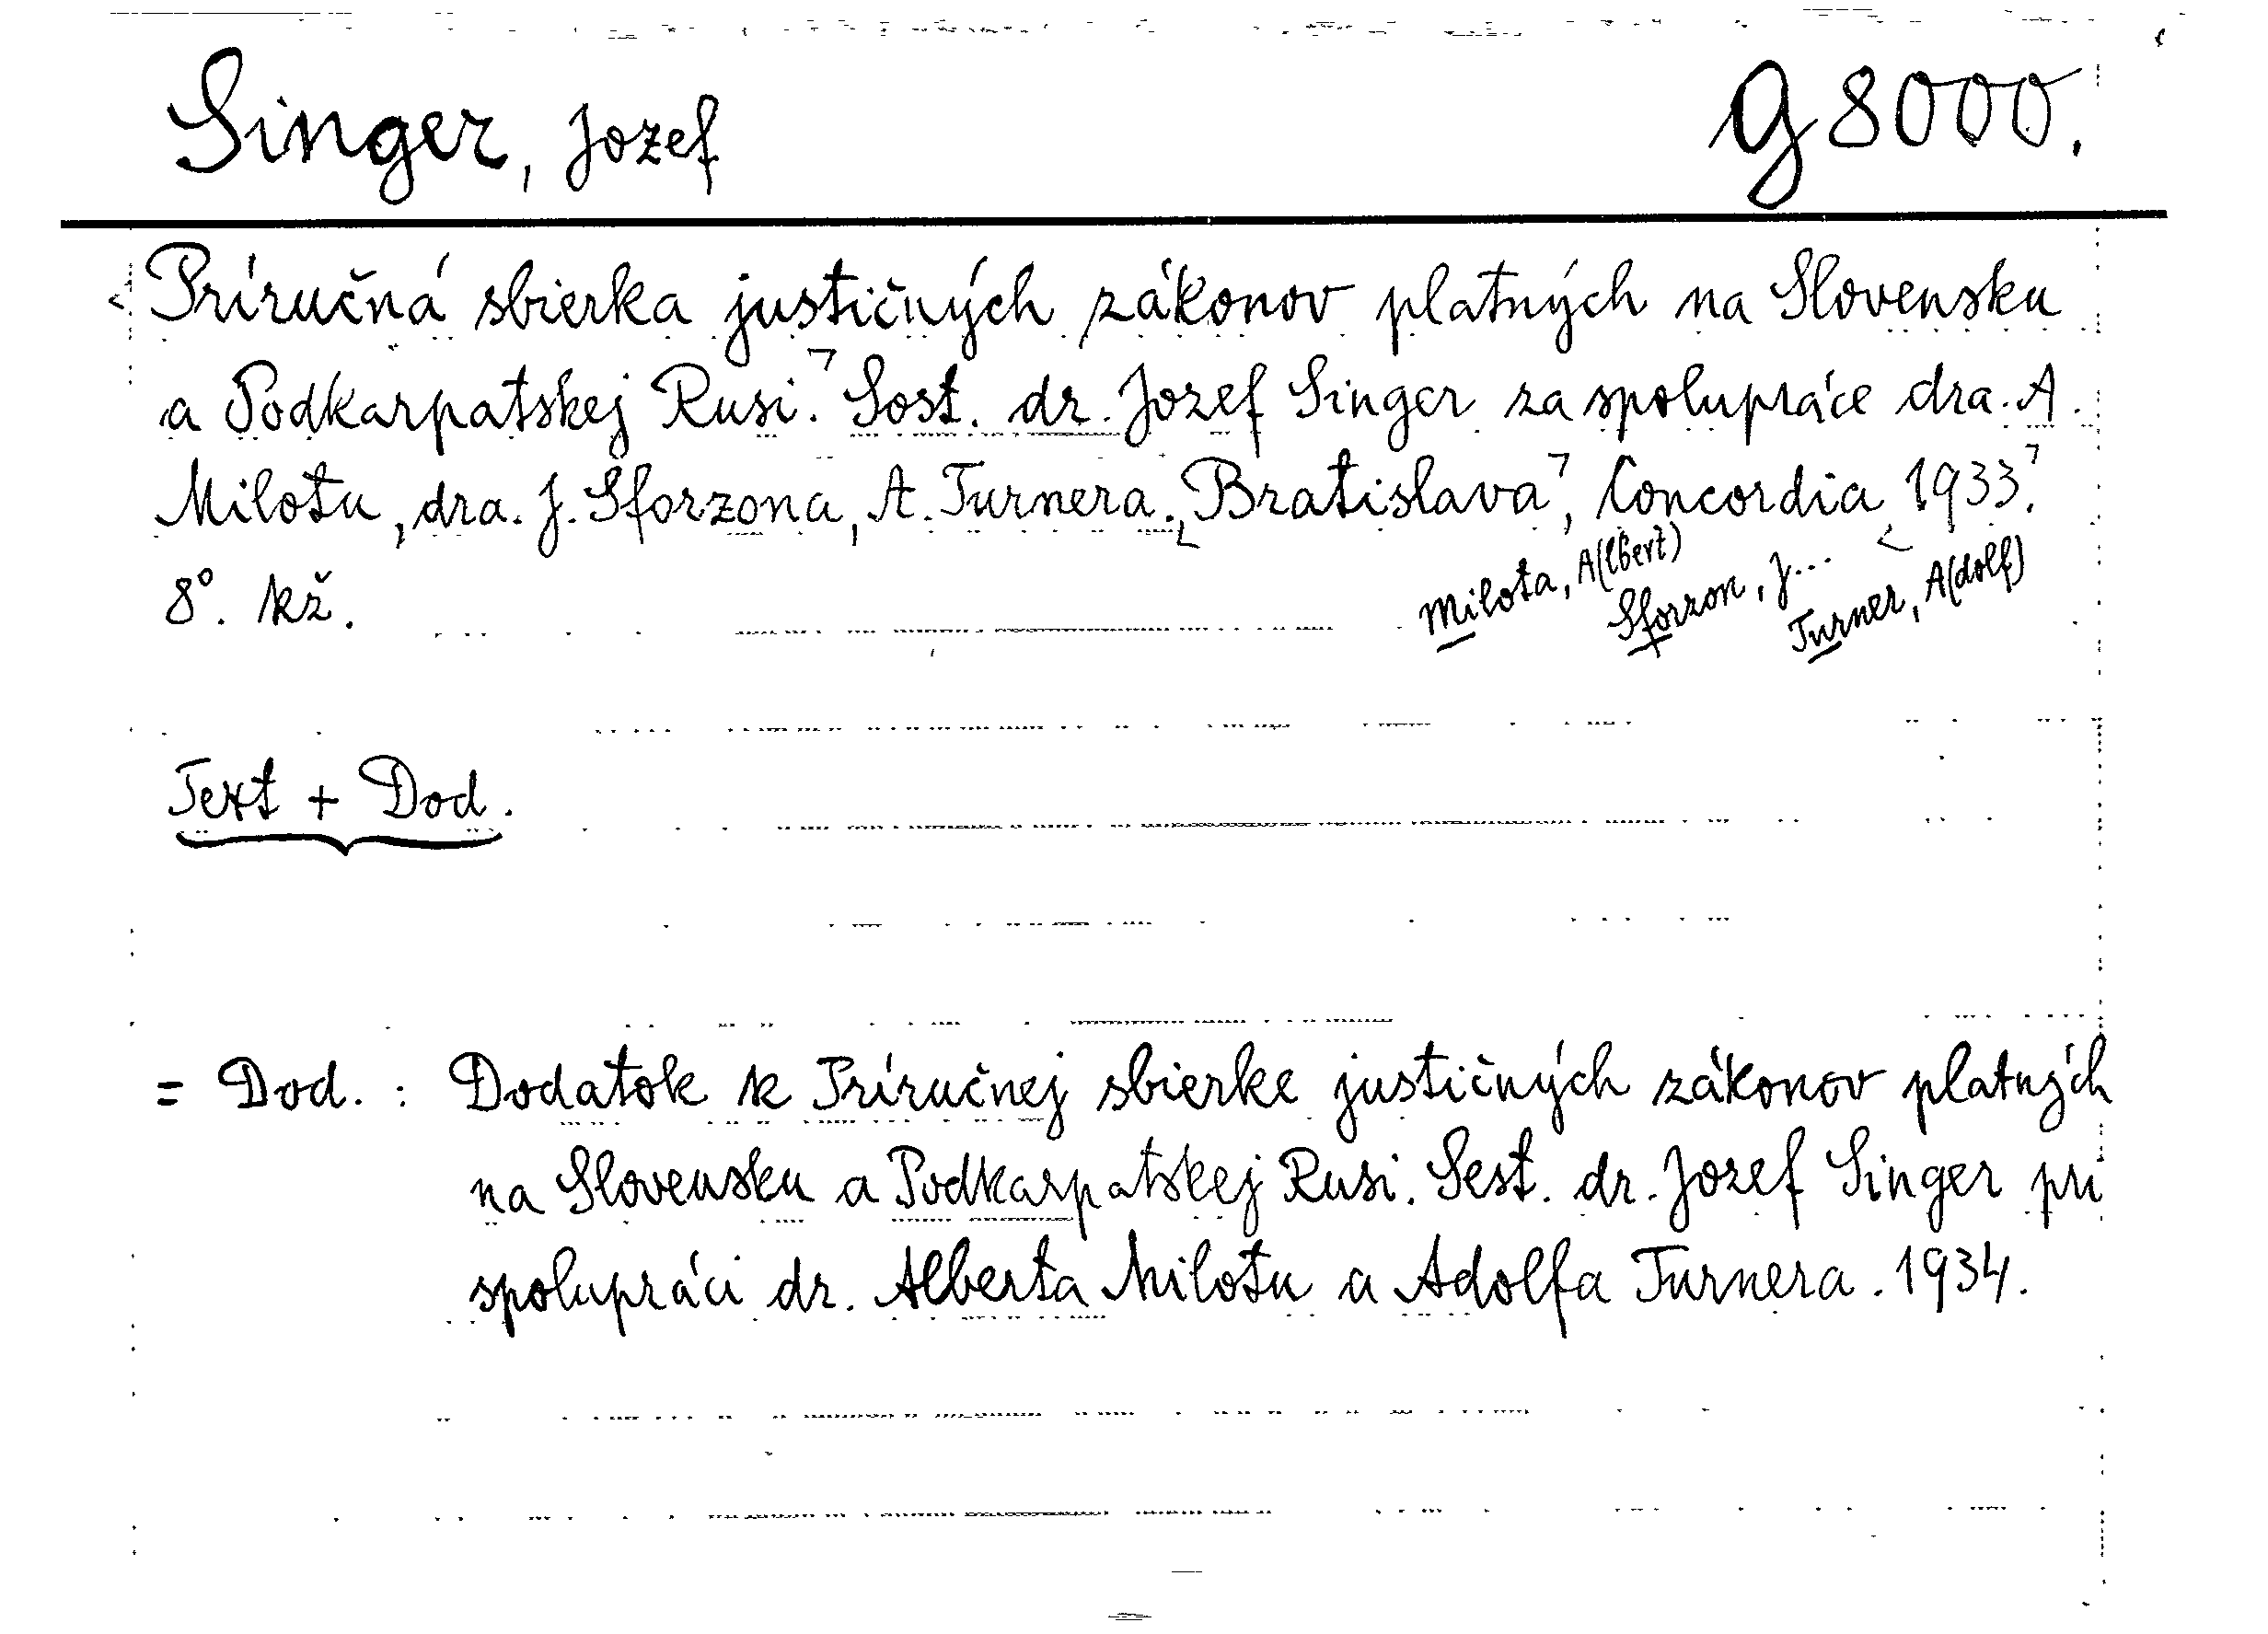 Singer, Jozef
g 8000.
Príručná sbierka justičných zákonov platných na Slovensku
a Podkarpatskej Rusi. Sost. dr. Jozef Singer za spolupráce dra. A.
Milotu, dra. J. Sforzona, A. Turnera. Bratislava, Concordia 1933.
8°. kž.
Milota, A(lbert)
Sforzon, J...
Turner, A(dolf)
Text + Dod.
= Dod. : Dodatok k Príručnej sbierke justičných zákonov platných
na Slovensku a Podkarpatskej Rusi. Sest. dr. Jozef Singer pri
spolupráci dr. Alberta Milotu a Adolfa Turnera. 1934.